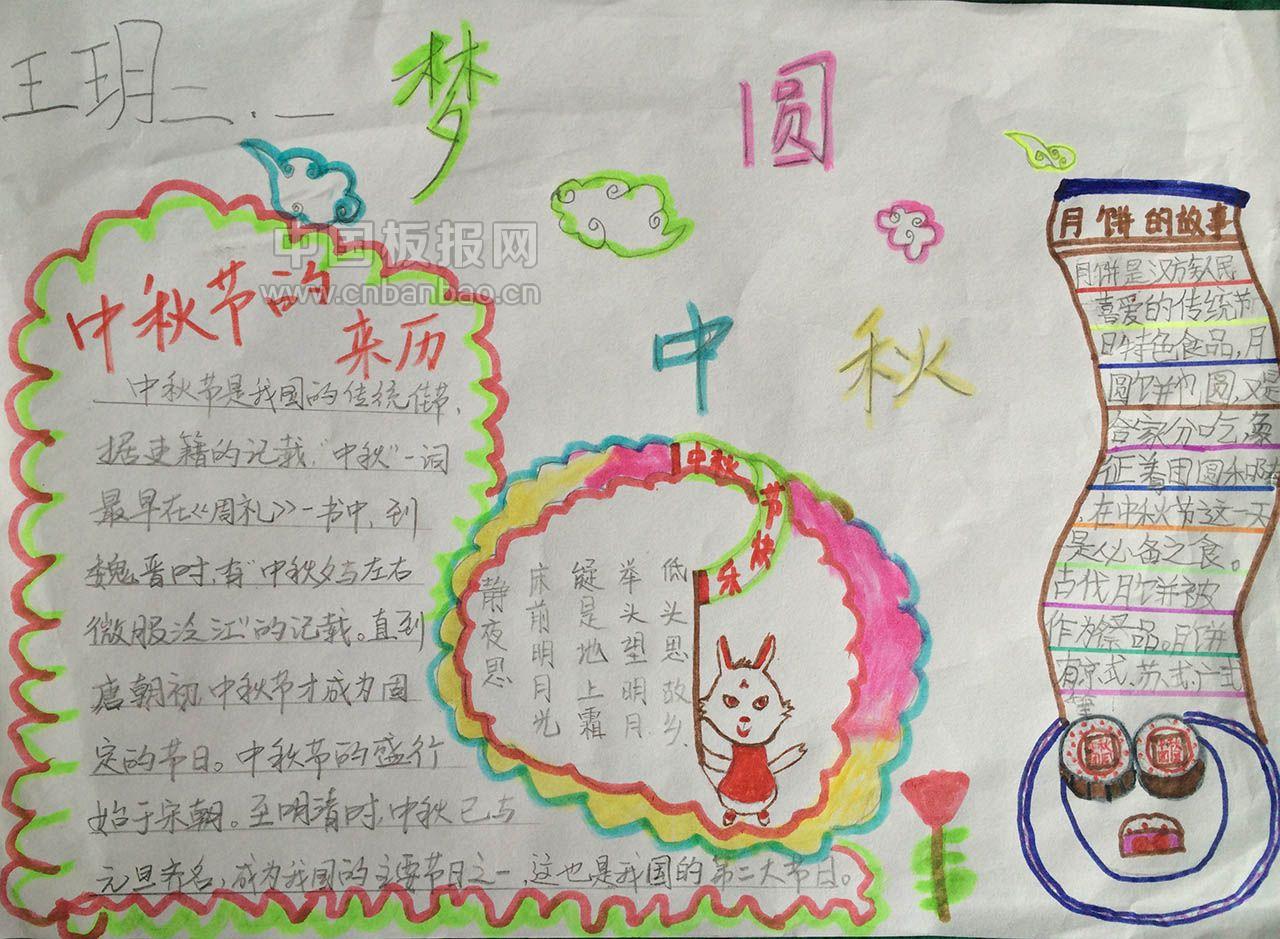 王玥 二.一
梦 圆
中 秋
中国板报网
www.cnbanbao.cn
中秋节的
来历
中秋节是我国的传统佳节,
据史籍的记载,“中秋”一词
最早在《周礼》一书中,到
魏晋时,有“中秋夕与左右
微服泛江”的记载。直到
唐朝初中秋节才成为固
定的节日。中秋节的盛行
始于宋朝。至明清时,中秋已与
元旦齐名,成为我国的主要节日之一,这也是我国的第二大节日。
中秋节快乐
低头思故乡.
举头望明月
疑是地上霜
床前明月光
静夜思
月饼的故事
月饼是汉族人民
喜爱的传统节
日特色食品,月
圆饼也圆,又是
合家分吃,象
征着团圆和
,在中秋节这一天
是必备之食。
古代月饼被
作为祭品。月饼
有京式、苏式、广式
等